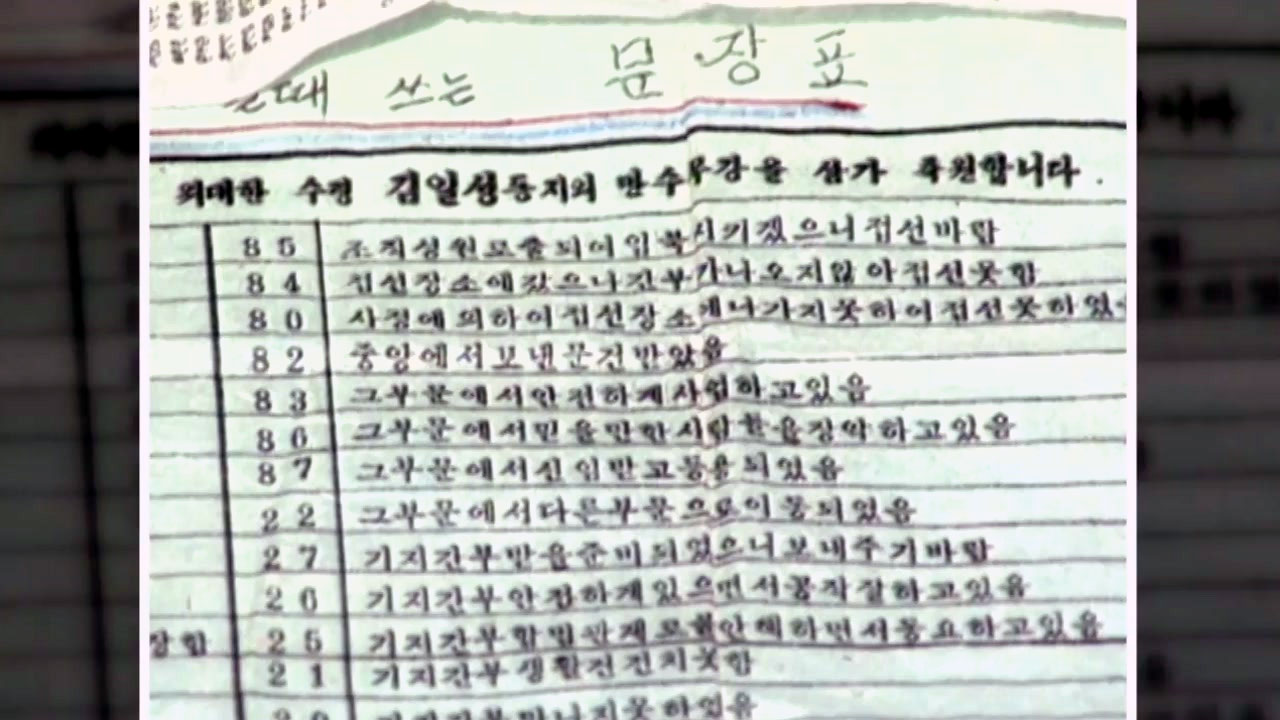 때 쓰는 문장표
위대한 수령 김일성동지의 만수무강을 삼가 축원합니다.
85 조직성원모출되어입북시키겠으니접선바람
84 접선장소에갔으나간부가나오지않아접선못함
80 사정에의하여접선장소에나가지못하여접선못하였
82 중앙에서보낸문건받았음
83 그부문에서안전하게사업하고있음
86 그부문에서믿을만한사람들을장악하고있음
87 그부문에서신임받고등용되었음
22 그부문에서다른부문으로이동되었음
27 기지간부받을준비되었으니보내주기바람
26 기지간부안전하게있으면서공작잘하고있음
장함 25 기지간부합법관계모색안해하면서동요하고있음
21 기지간부생활전진치못함
20 기지간부만나지못하였음